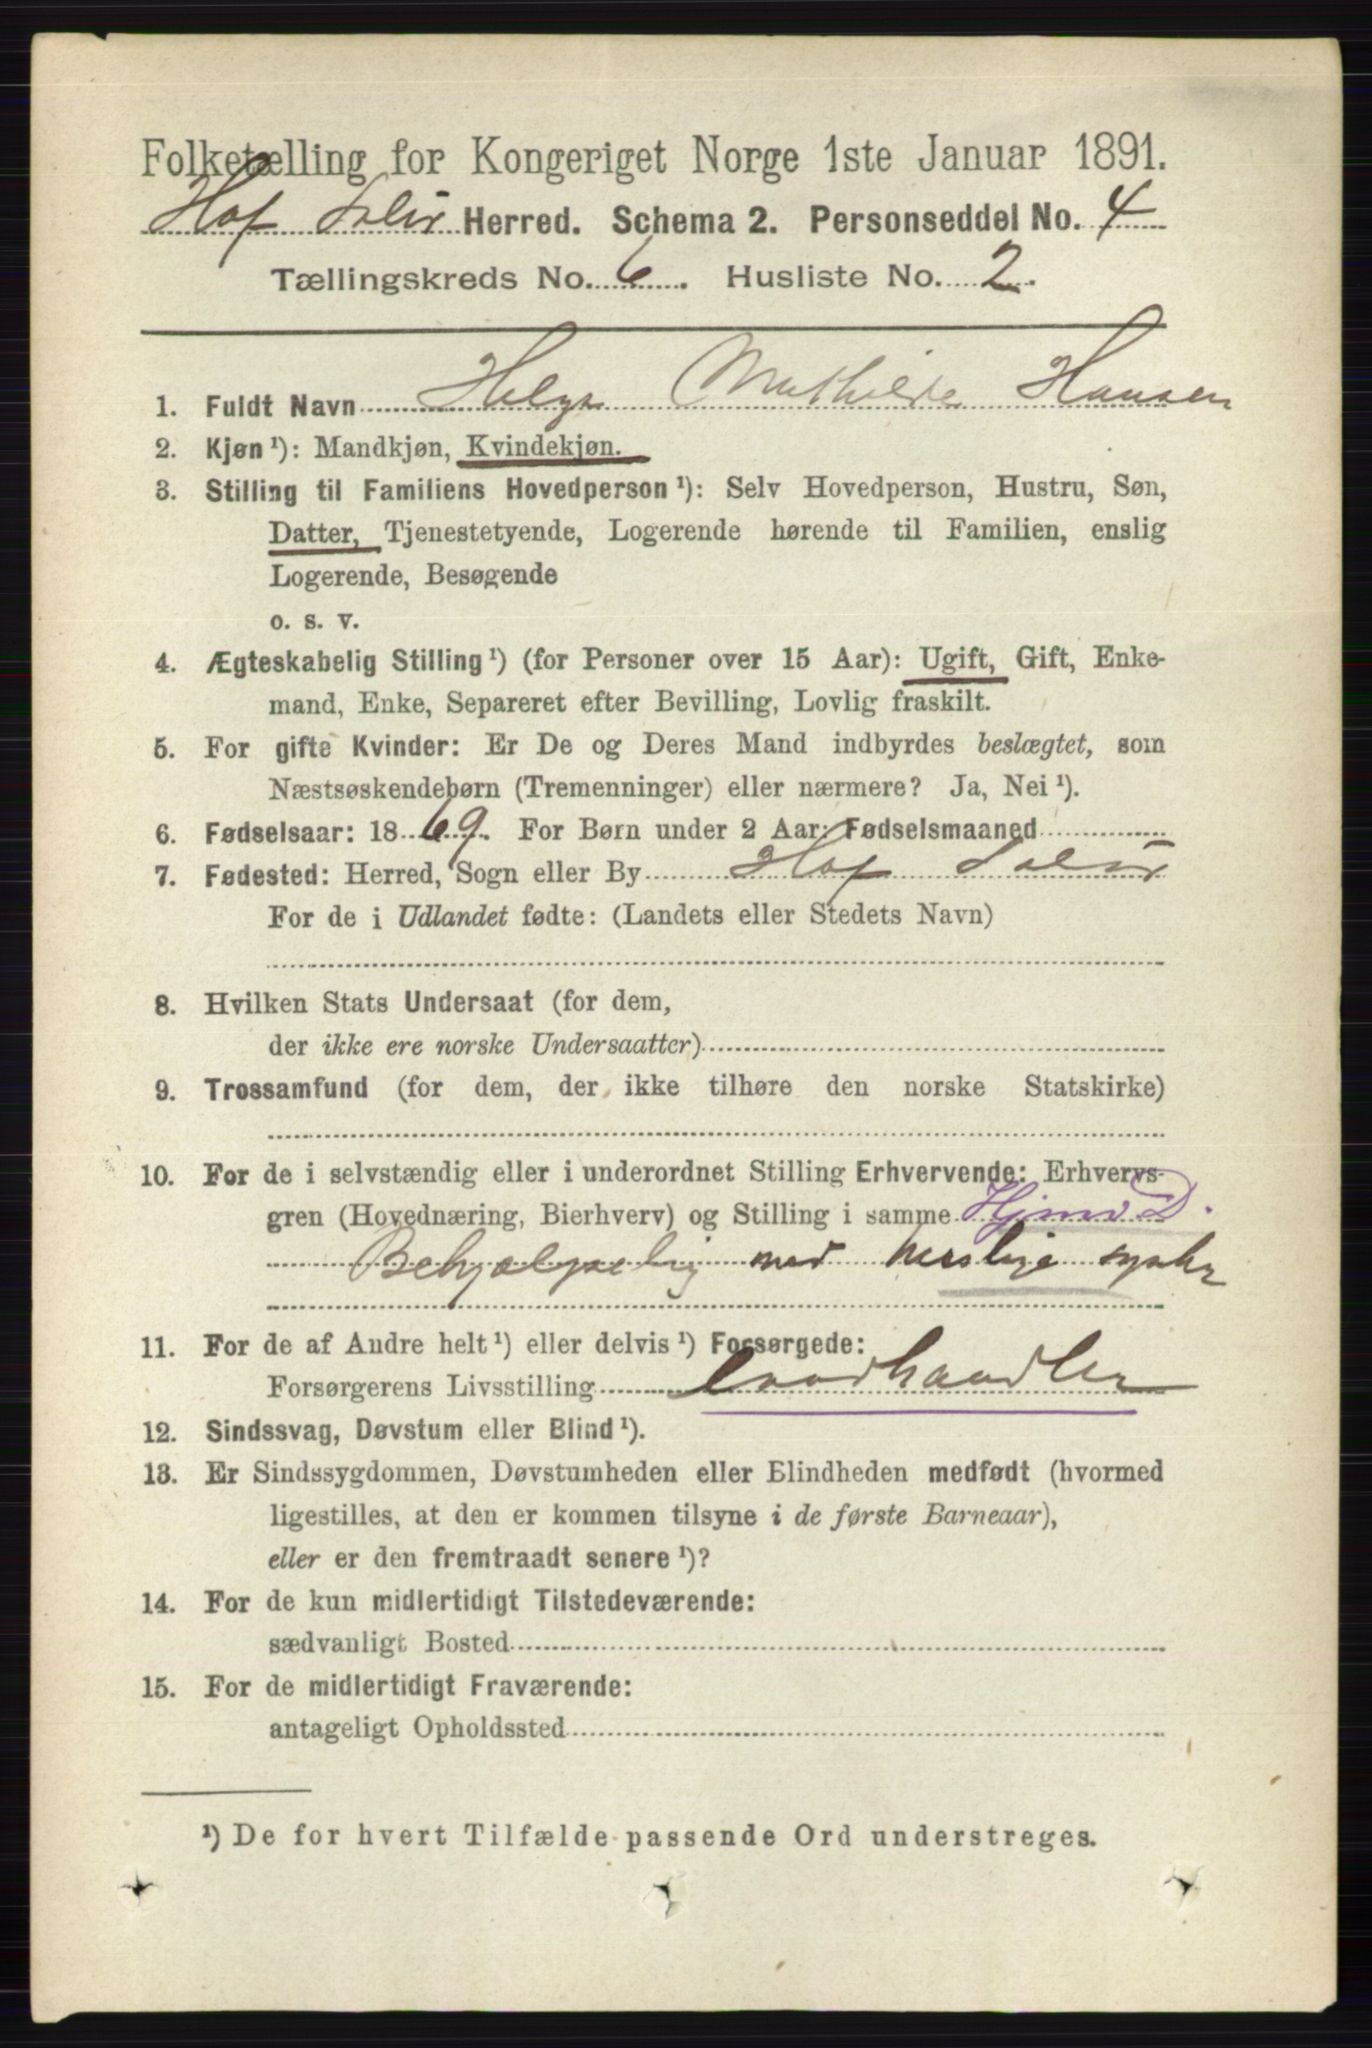 Folketælling for Kongeriget Norge 1ste Januar 1891.
Hof Solør Herred. Schema 2. Personseddel No. 4
Tællingskreds No. 6. Husliste No. 2.
1. Fuldt Navn Helga Mathilde Hansen
2. Kjøn ¹): Mandkjøn, Kvindekjøn.
3. Stilling til Familiens Hovedperson ¹): Selv Hovedperson, Hustru, Søn,
Datter, Tjenestetyende, Logerende hørende til Familien, enslig
Logerende, Besøgende
o. s. v.
4. Ægteskabelig Stilling ¹) (for Personer over 15 Aar): Ugift, Gift, Enke-
mand, Enke, Separeret efter Bevilling, Lovlig fraskilt.
5. For gifte Kvinder: Er De og Deres Mand indbyrdes beslægtet, som
Næstsøskendebørn (Tremenninger) eller nærmere? Ja, Nei ¹).
6. Fødselsaar: 1869. For Børn under 2 Aar: Fødselsmaaned
7. Fødested: Herred, Sogn eller By Hof Solør
For de i Udlandet fødte: (Landets eller Stedets Navn)
8. Hvilken Stats Undersaat (for dem,
der ikke ere norske Undersaatter)
9. Trossamfund (for dem, der ikke tilhøre den norske Statskirke)
10. For de i selvstændig eller i underordnet Stilling Erhvervende: Erhvervs-
gren (Hovednæring, Bierhverv) og Stilling i samme Hjmv D.
Behjælpelig med huslige sysler
11. For de af Andre helt ¹) eller delvis ¹) Forsørgede:
Forsørgerens Livsstilling Landhandler
12. Sindssvag, Døvstum eller Blind ¹).
13. Er Sindssygdommen, Døvstumheden eller Blindheden medfødt (hvormed
ligestilles, at den er kommen tilsyne i de første Barneaar),
eller er den fremtraadt senere ¹)?
14. For de kun midlertidigt Tilstedeværende:
sædvanligt Bosted
15. For de midlertidigt Fraværende:
antageligt Opholdssted
¹) De for hvert Tilfælde passende Ord understreges.